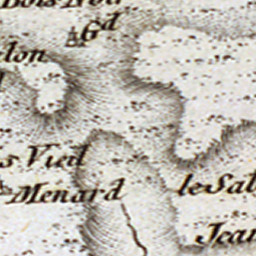 Bois
Gd
lon
s Vied
Menard
le Sal
Jean